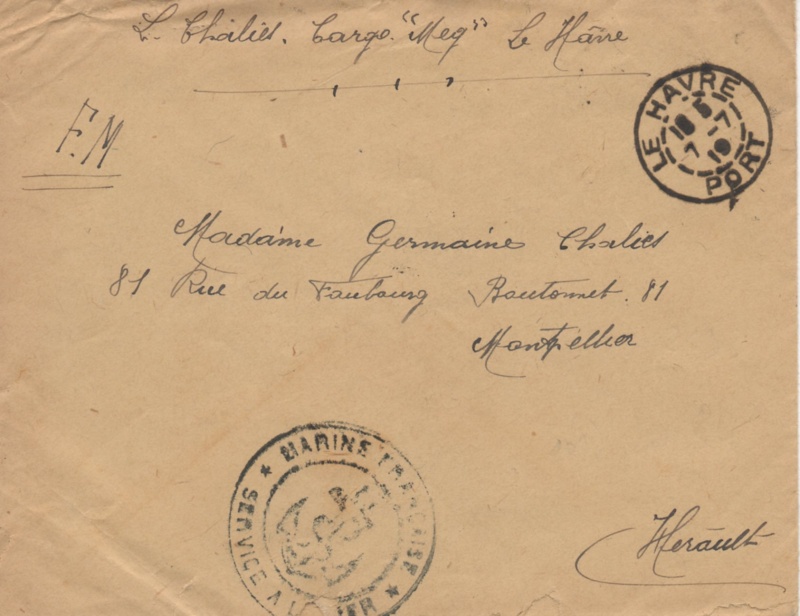 L. Chaliès. Cargo "Meg" Le Hâvre
F.M
LE HAVRE
18 5
7 7
19
PORT
Madame Germaine Chaliès
81 Rue du Faubourg Boutonnet. 81
Montpellier
★ MARINE FRANÇAISE ★
SERVICE A LA MER
Herault